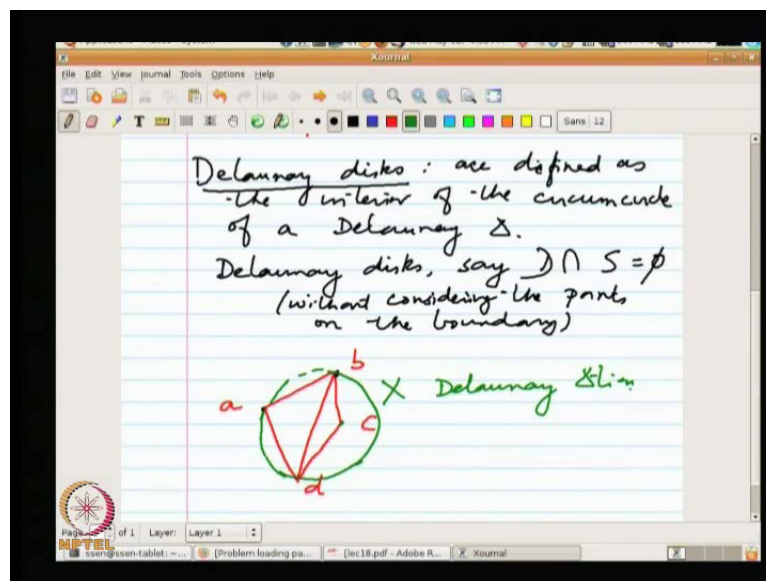 Xournal
File Edit View Journal Tools Options Help
Sans 12
Delaunay disks : are defined as
the interior of the circumcircle
of a Delaunay Δ.
Delaunay disks, say D ∩ S = ϕ
(without considering the points
on the boundary)
b
a
X Delaunay Δlin
c
d
Page of 1 Layer: Layer 1
NPTEL
ssen@ssen-tablet: ~... [Problem loading pa... [lec18.pdf - Adobe R... Xournal